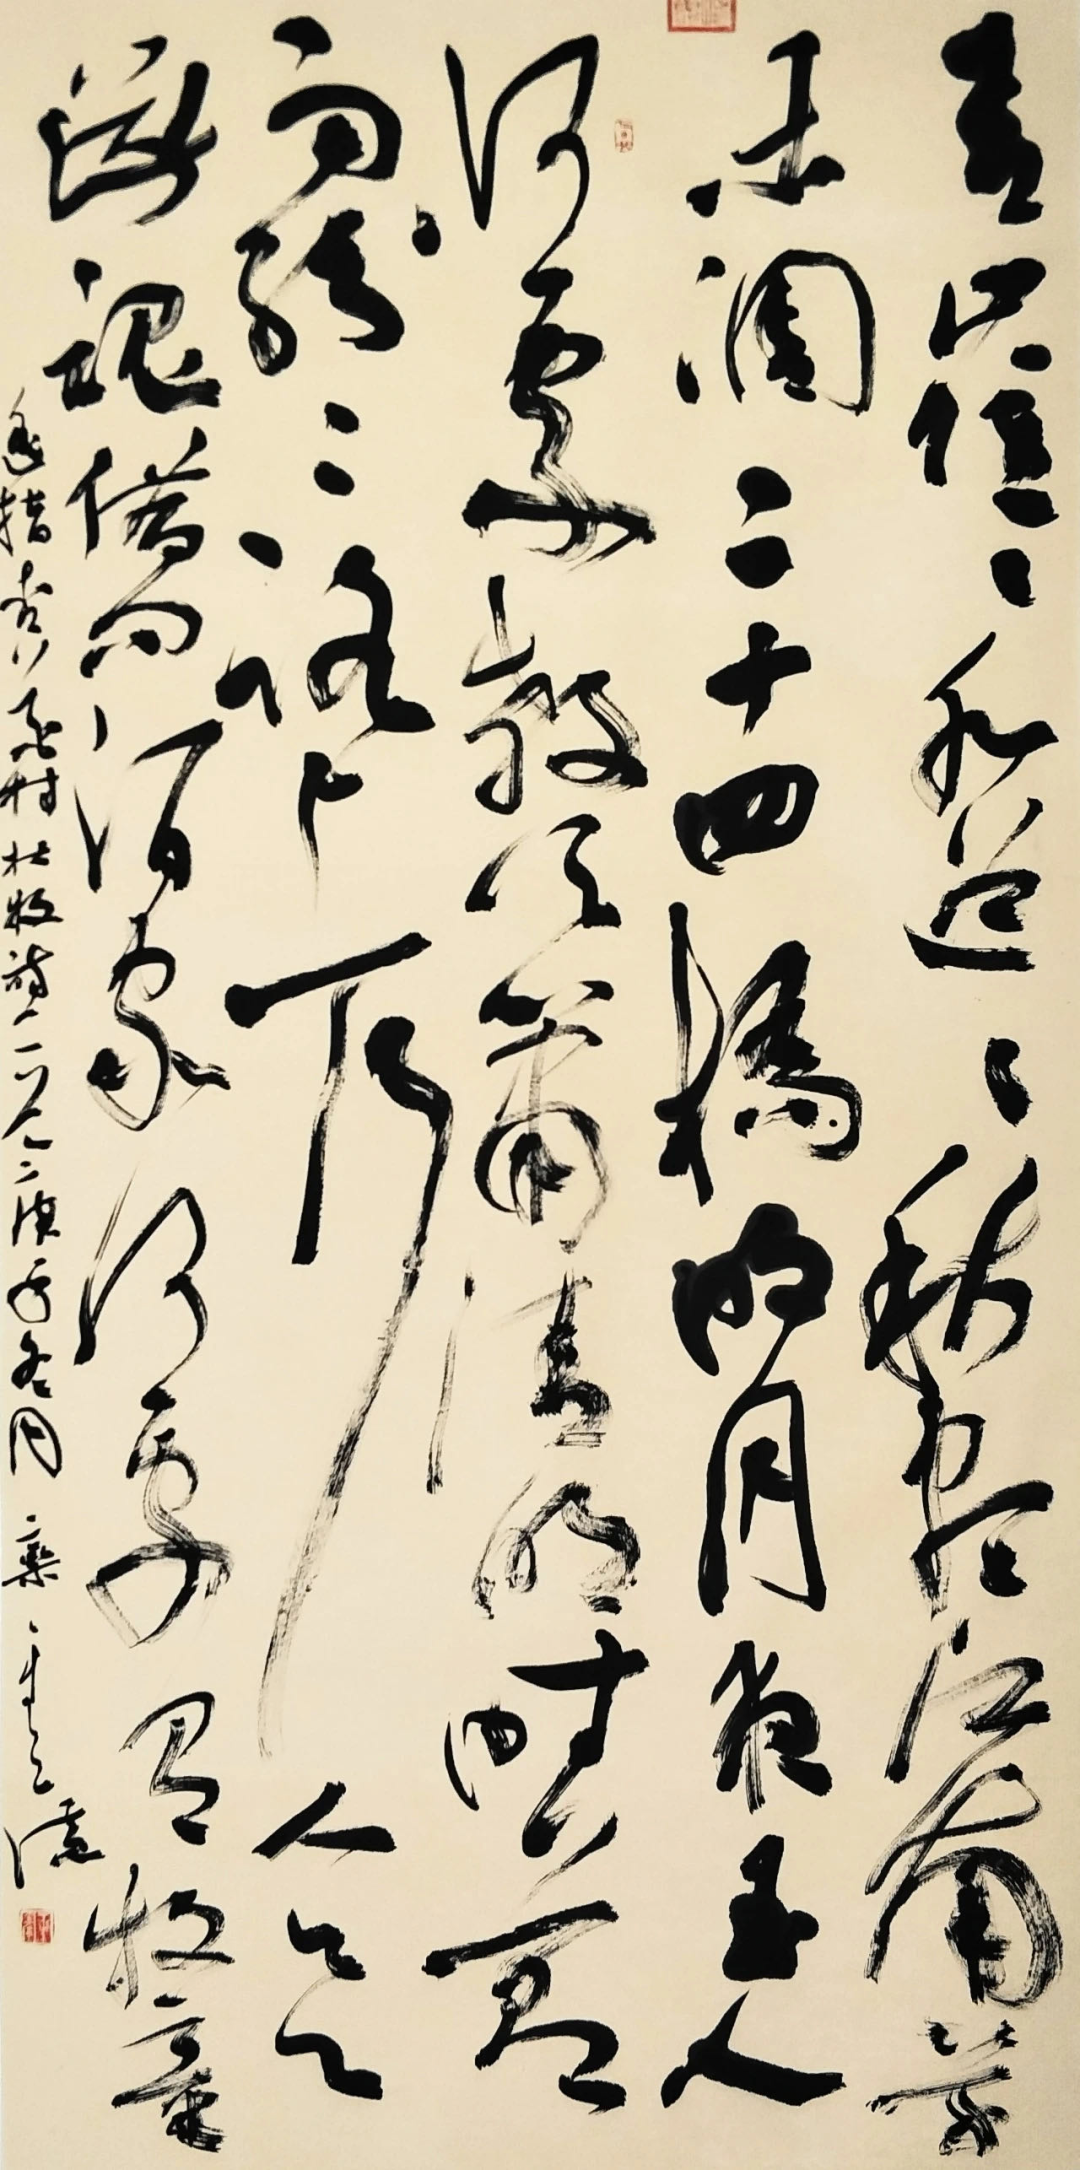 青山隱々水迢々秋盡江南草
未凋二十四橋明月夜玉人
何處教吹簫清明時節
雨紛々路上行人欲
斷魂借問酒家何處有牧童
遙指杏花村杜牧詩二〇二〇庚子冬月